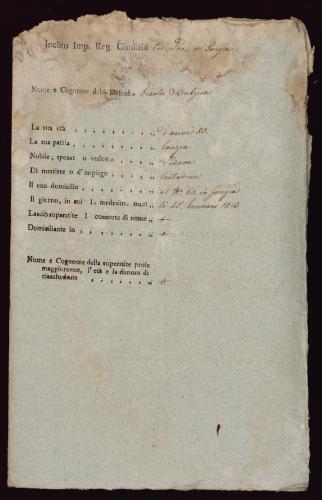 Inclito Imp. Reg. Giudizio Civ. Prov. di Gorizia
Nome e Cognome della Defunta Orsola
La sua età . . . . . . . . . „ d'anni 83.
La sua patria . . . . . . . . „ Gorizia
Nobile, sposat o vedov . . . . „ Vedova
Di mestiere o d'impiego . . . . „ Contadina
Il suo domicilio . . . . . . . „ al N° 63 in Gorizia
Il giorno, in cui l medesim morì „ li 25 Gennaro
Lasciò superstite l consorte di nome „ +
Domiciliante in . . . . . . . „ +
Nome e Cognome della superstite prole
maggiorenne, l'età e la dimora di
ciascheduno . . . . . . . „ +